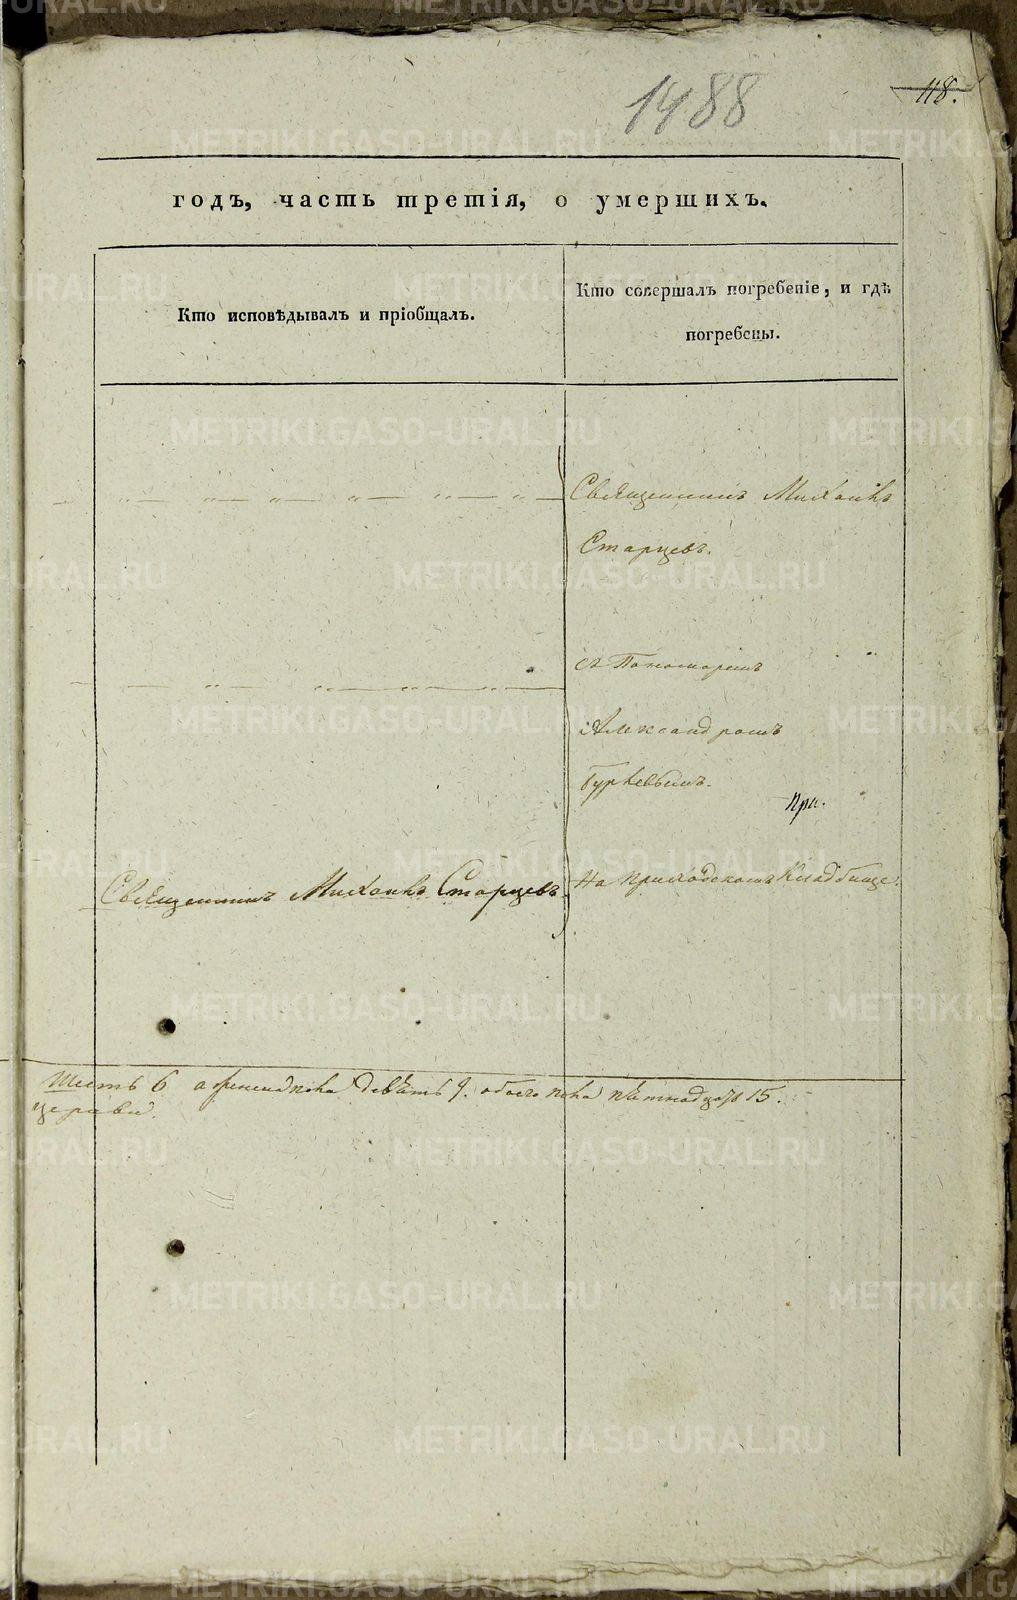 1488
118.
годъ, часть третія, о умершихъ.
Кто исповѣдывалъ и пріобщалъ.
Кто совершалъ погребеніе, и гдѣ
погребены.
Священникъ Михаилъ
Старцевъ.
съ Пономаремъ
Александромъ
Гурьевымъ.
при.
Священникъ Михаилъ Старцевъ.
На приходскомъ Кладбище.
Шесть 6 а женска пола девять 9. обоего пола пѣтнадцать 15.
церкви.
METRIKI.GASO-URAL.RU